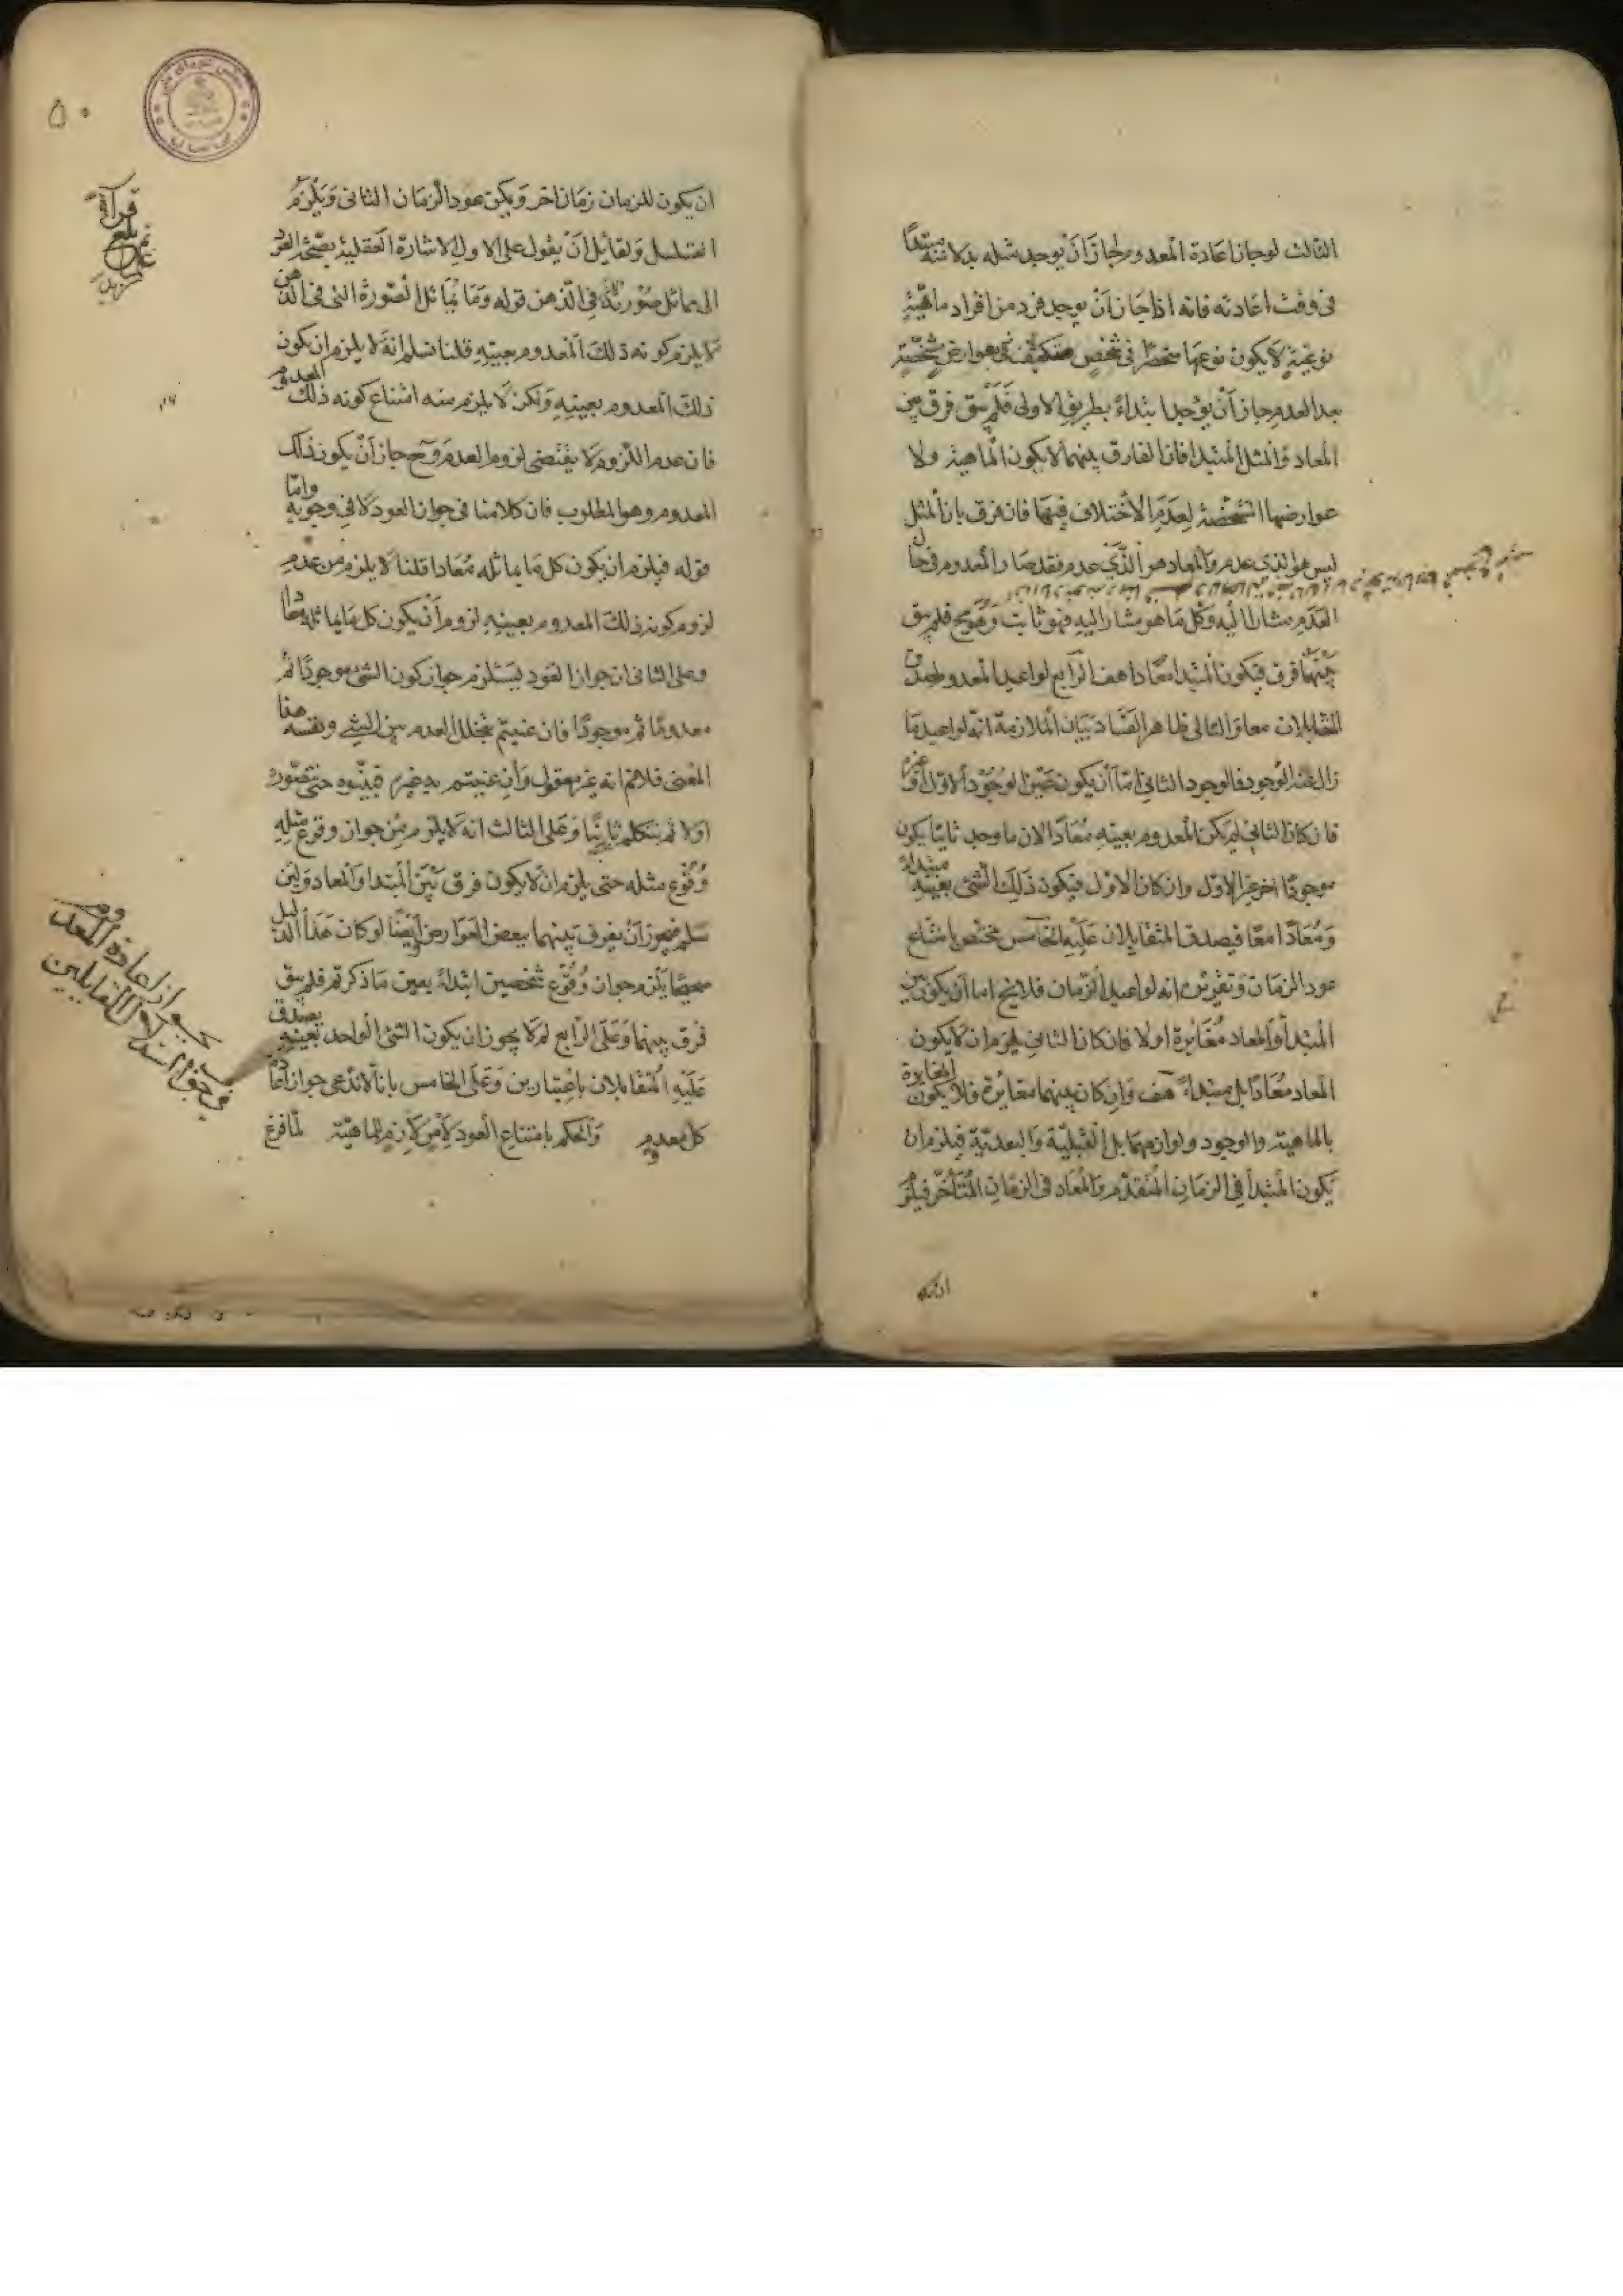 الثالث لو جاز اعادة المعدوم لجاز ان يوجد مثله بدلا منه مبتدأ
فى وقت اعادته فانه اذا جاز ان يوجد فرد من افراد ماهية
نوعية لا يكون نوعها منحصرا فى شخص بعوارض شخصية
بعد العدم جاز ان يوجد ابتداء بطريق الاولى فلم يبق فرق بين
المعاد والمثل المبتدا فان الفارق بينهما لا يكون الماهية ولا
عوارضها المشخصة لعدم الاختلاف فيها فان فرق بان المثل
ليس هو الذى عدم والمعاد هو الذى عدم فقد صار المعدوم فى حال
العدم مشارا اليه وكل ما هو مشار اليه فهو ثابت فلم يبق
بينهما فرق فيكون المبتدا معادا هف الرابع لو اعيد المعدوم لصدق
المتقابلان معا والتالى ظاهر الفساد بيان الملازمة انه لو اعيد ما
زال عنه الوجود فالوجود الثانى اما ان يكون عين الوجود الاول او غيره
فان كان الثانى لم يكن المعدوم بعينه معادا لان ما وجد ثانيا يكون
موجودا اخر غير الاول وان كان الاول فيكون ذلك الشئ بعينه مبتداء
ومعادا معا فيصدق المتقابلان عليه الخامس مختص بامتناع
عود الزمان وتقريره انه لو اعيد الزمان فلا يخ اما ان يكون بين
المبتدأ والمعاد مغايرة او لا فان كان الثانى يلزم ان لا يكون
المعاد معادا بل مبتداء هف وان كان بينهما مغايرة فلا يكون المغايرة
بالماهية والوجود ولوازمهما بل القبلية والبعدية فيلزم ان
يكون المبتدأ فى الزمان المتقدم والمعاد فى الزمان المتأخر فيلزم
٥٠
ان يكون للزمان زمان اخر ويكن عود الزمان الثانى ويلزم
التسلسل ولقائل ان يقول على الاول الاشارة العقلية بصحة العود
الى مماثل صورته فى الذهن قوله وما يماثل الصورة التى فى الذهن
لا يلزم كونه ذلك المعدوم بعينه قلنا نسلم انه لا يلزم ان يكون
ذلك المعدوم بعينه ولكن لا يلزم منه امتناع كونه ذلك المعدوم
فان عدم اللزوم لا يقتضى لزوم العدم وح جاز ان يكون ذلك
المعدوم وهو المطلوب فان كلامنا فى جواز العود لا فى وجوبه واما
قوله فيلزم ان يكون كل ما يماثله معادا قلنا لا يلزم من عدم
لزوم كونه ذلك المعدوم بعينه لزوم ان يكون كل ما يماثله معادا
وعلى الثانى ان جواز العود يستلزم جواز كون الشئ موجودا ثم
معدوما ثم موجودا فان عنيتم بتخلل العدم بين الشئ ونفسه هذا
المعنى فلا نم انه غير معقول وان عنيتم به غيره فبينوه حتى نتصوره
اولا ثم نتكلم ثانيا وعلى الثالث انه لا يلزم من جواز وقوع مثله
وقوع مثله حتى يلزم ان لا يكون فرق بين المبتدا والمعاد ولئن
سلم فيجوز ان يفرق بينهما ببعض العوارض وايضا لو كان هذا الدليل
صحيحا يلزم جواز وقوع شخصين ابتداء بعين ما ذكرتم فلم يبق
فرق بينهما وعلى الرابع لم لا يجوز ان يكون الشئ الواحد بعينه يصدق
عليه المتقابلان باعتبارين وعلى الخامس بانا لا ندعى جواز اعادة
كل معدوم والحكم بامتناع العود لامر لازم للماهية لما فرغ